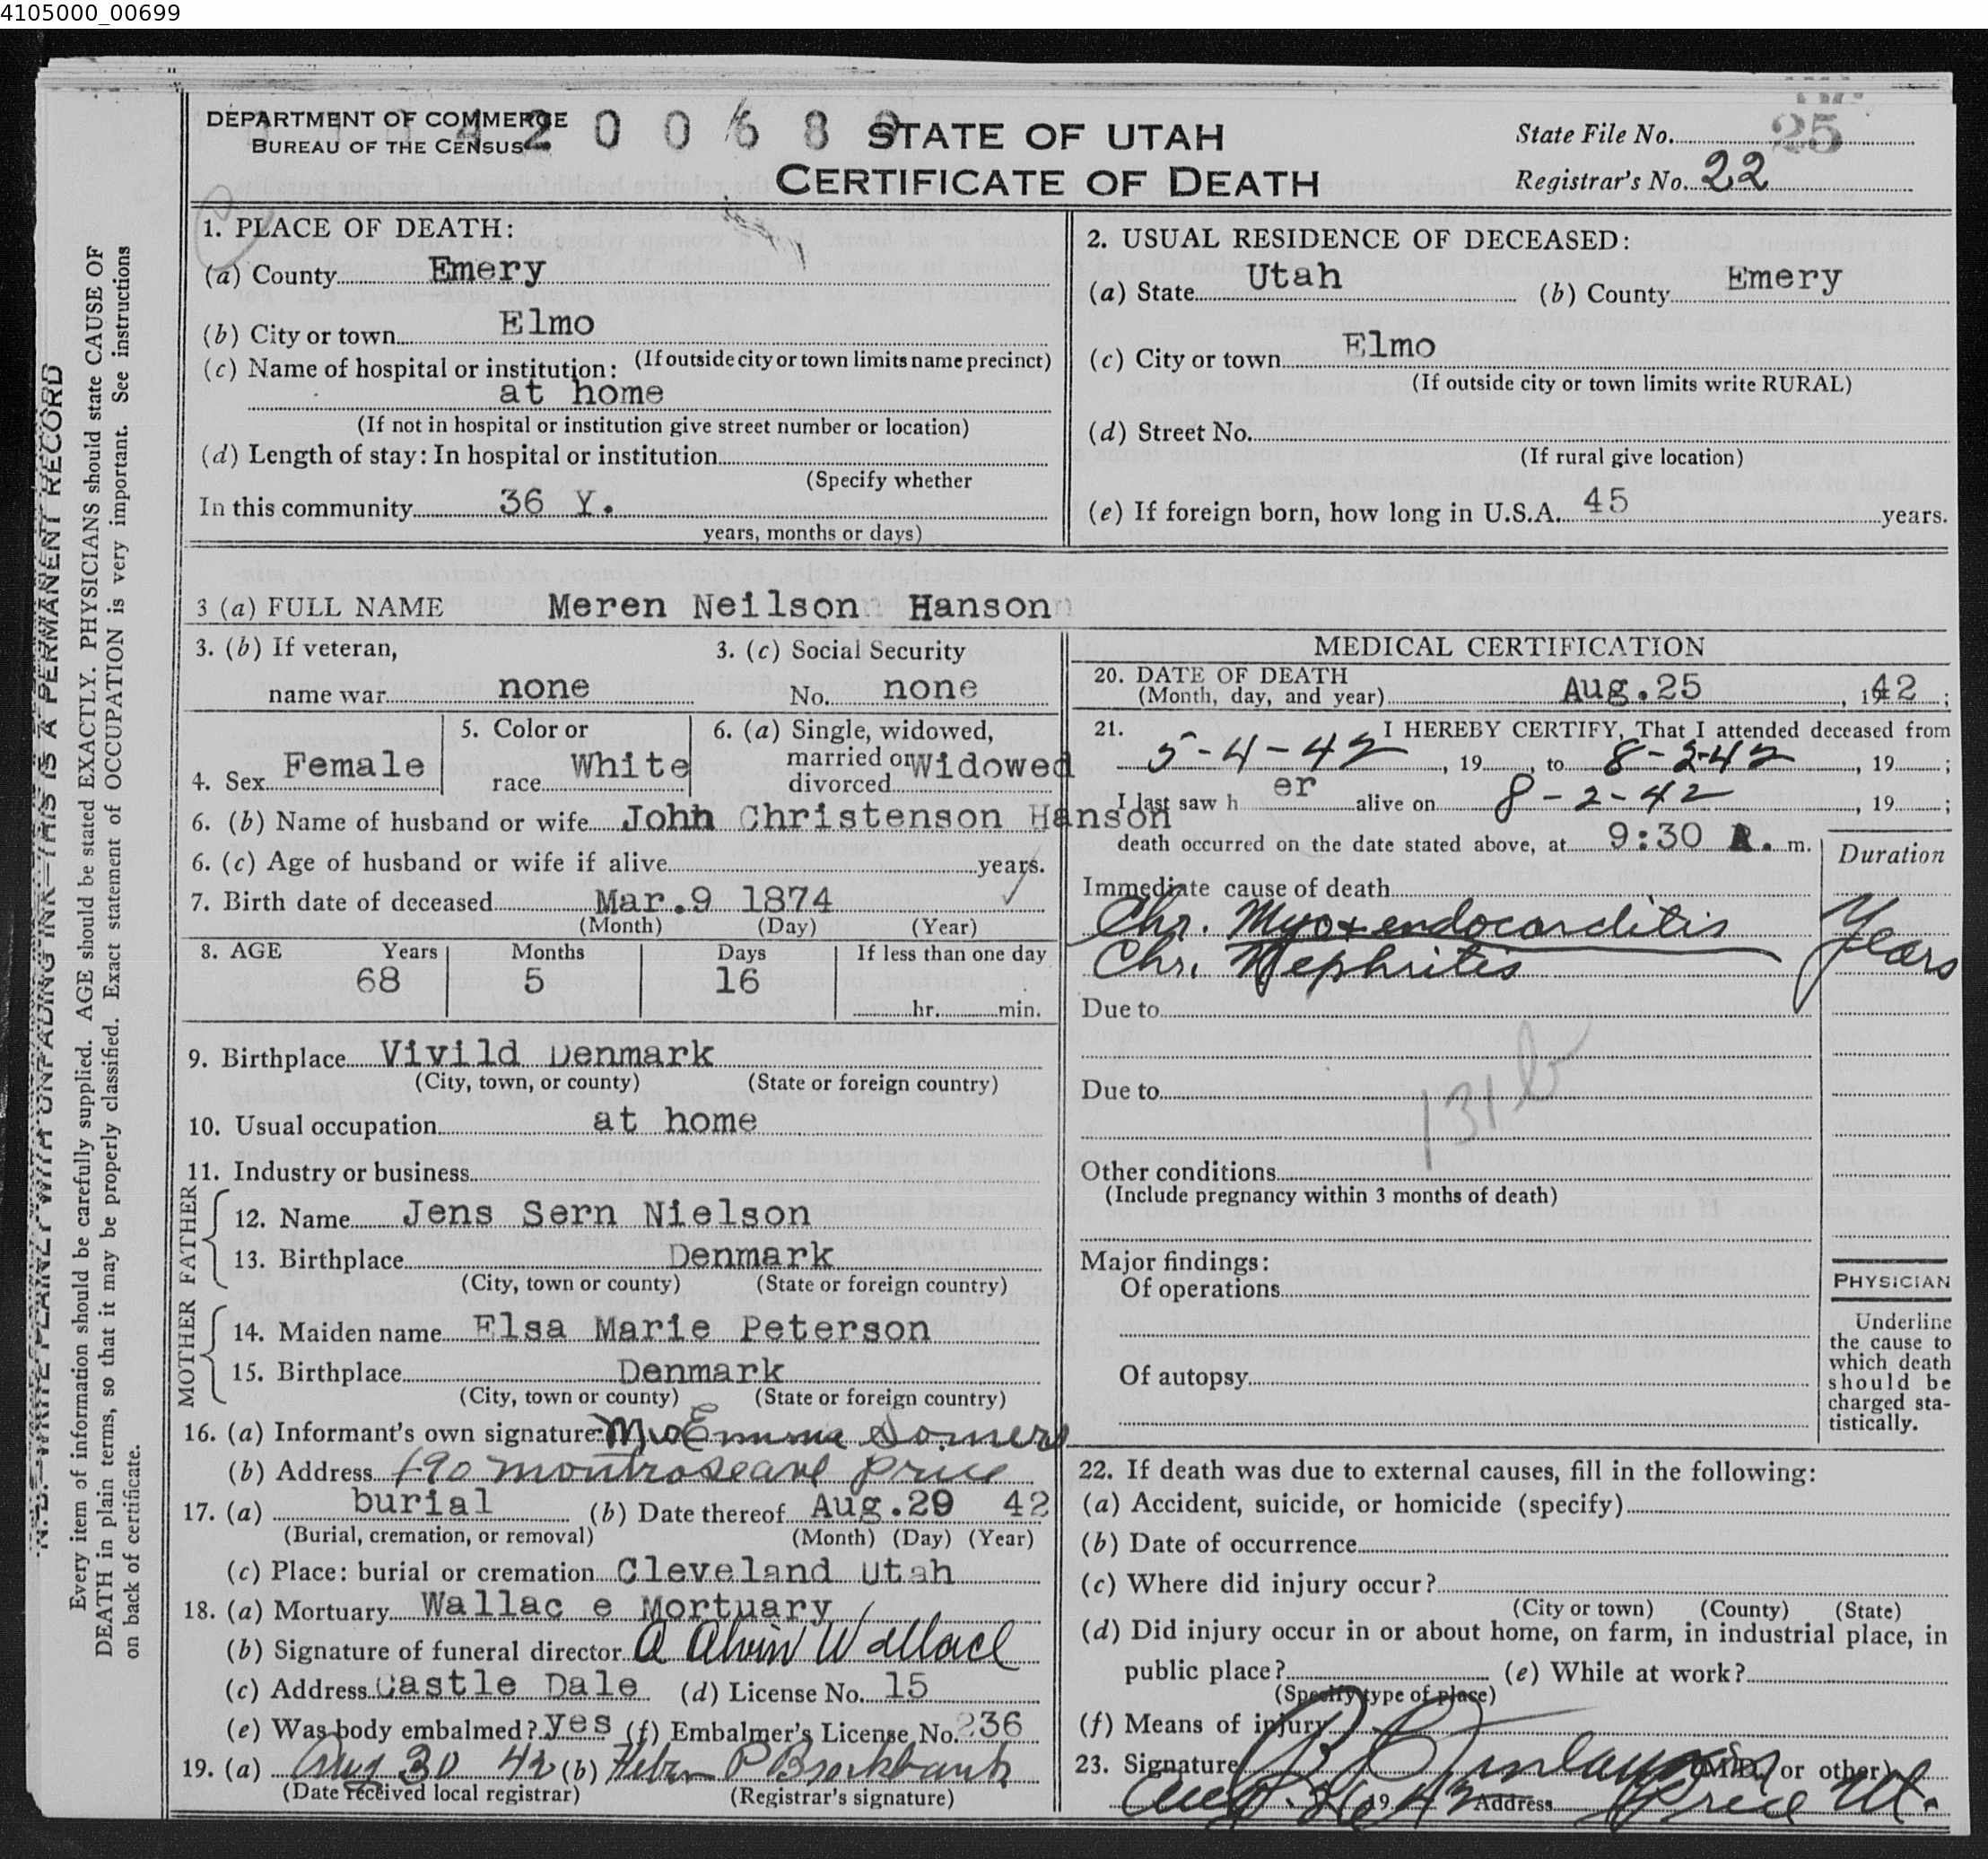 4105000_00699
DEPARTMENT OF COMMERCE
BUREAU OF THE CENSUS
2 0 0 6 8
STATE OF UTAH
CERTIFICATE OF DEATH
State File No. 25
Registrar's No. 22
1. PLACE OF DEATH:
(a) County Emery
(b) City or town Elmo
(If outside city or town limits name precinct)
(c) Name of hospital or institution:
at home
(If not in hospital or institution give street number or location)
(d) Length of stay: In hospital or institution
(Specify whether
In this community 36 Y.
years, months or days)
2. USUAL RESIDENCE OF DECEASED:
(a) State Utah (b) County Emery
(c) City or town Elmo
(If outside city or town limits write RURAL)
(d) Street No.
(If rural give location)
(e) If foreign born, how long in U.S.A. 45 years.
3 (a) FULL NAME Meren Neilson Hanson
3. (b) If veteran, 3. (c) Social Security
name war none No. none
5. Color or 6. (a) Single, widowed,
4. Sex Female race White married or Widowed
divorced
6. (b) Name of husband or wife John Christenson Hanson
6. (c) Age of husband or wife if alive years.
7. Birth date of deceased Mar. 9 1874
(Month) (Day) (Year)
8. AGE Years Months Days If less than one day
68 5 16
hr. min.
9. Birthplace Vivild Denmark
(City, town, or county) (State or foreign country)
10. Usual occupation at home
11. Industry or business
FATHER
12. Name Jens Sern Nielson
13. Birthplace Denmark
(City, town or county) (State or foreign country)
MOTHER
14. Maiden name Elsa Marie Peterson
15. Birthplace Denmark
(City, town or county) (State or foreign country)
16. (a) Informant's own signature: Mrs Emma Somers
(b) Address 190 montrose ave price
17. (a) burial (b) Date thereof Aug. 29 42
(Burial, cremation, or removal) (Month) (Day) (Year)
(c) Place: burial or cremation Cleveland Utah
18. (a) Mortuary Wallac e Mortuary
(b) Signature of funeral director A Alvin Wallace
(c) Address Castle Dale (d) License No. 15
(e) Was body embalmed? yes (f) Embalmer's License No. 236
19. (a) Aug 30 42 (b) P Brockbank
(Date received local registrar) (Registrar's signature)
MEDICAL CERTIFICATION
20. DATE OF DEATH
(Month, day, and year) Aug. 25, 1942;
21. I HEREBY CERTIFY, That I attended deceased from
5-4-42, 19 , to 8-2-42, 19 ;
I last saw h er alive on 8-2-42, 19 ;
death occurred on the date stated above, at 9:30 A. m.
Duration
Immediate cause of death
Chr. Myo + endocarditis
Chr. Nephritis
Years
Due to
131 b
Due to
Other conditions
(Include pregnancy within 3 months of death)
Major findings:
Of operations
Of autopsy
PHYSICIAN
Underline
the cause to
which death
should be
charged sta-
tistically.
22. If death was due to external causes, fill in the following:
(a) Accident, suicide, or homicide (specify)
(b) Date of occurrence
(c) Where did injury occur?
(City or town) (County) (State)
(d) Did injury occur in or about home, on farm, in industrial place, in
public place? (e) While at work?
(Specify type of place)
(f) Means of injury
23. Signature (M.D. or other)
Aug. 26, 1942 Address Price Ut.
N. B.—WRITE PLAINLY WITH UNFADING INK—THIS IS A PERMANENT RECORD
Every item of information should be carefully supplied. AGE should be stated EXACTLY. PHYSICIANS should state CAUSE OF
DEATH in plain terms, so that it may be properly classified. Exact statement of OCCUPATION is very important. See instructions
on back of certificate.